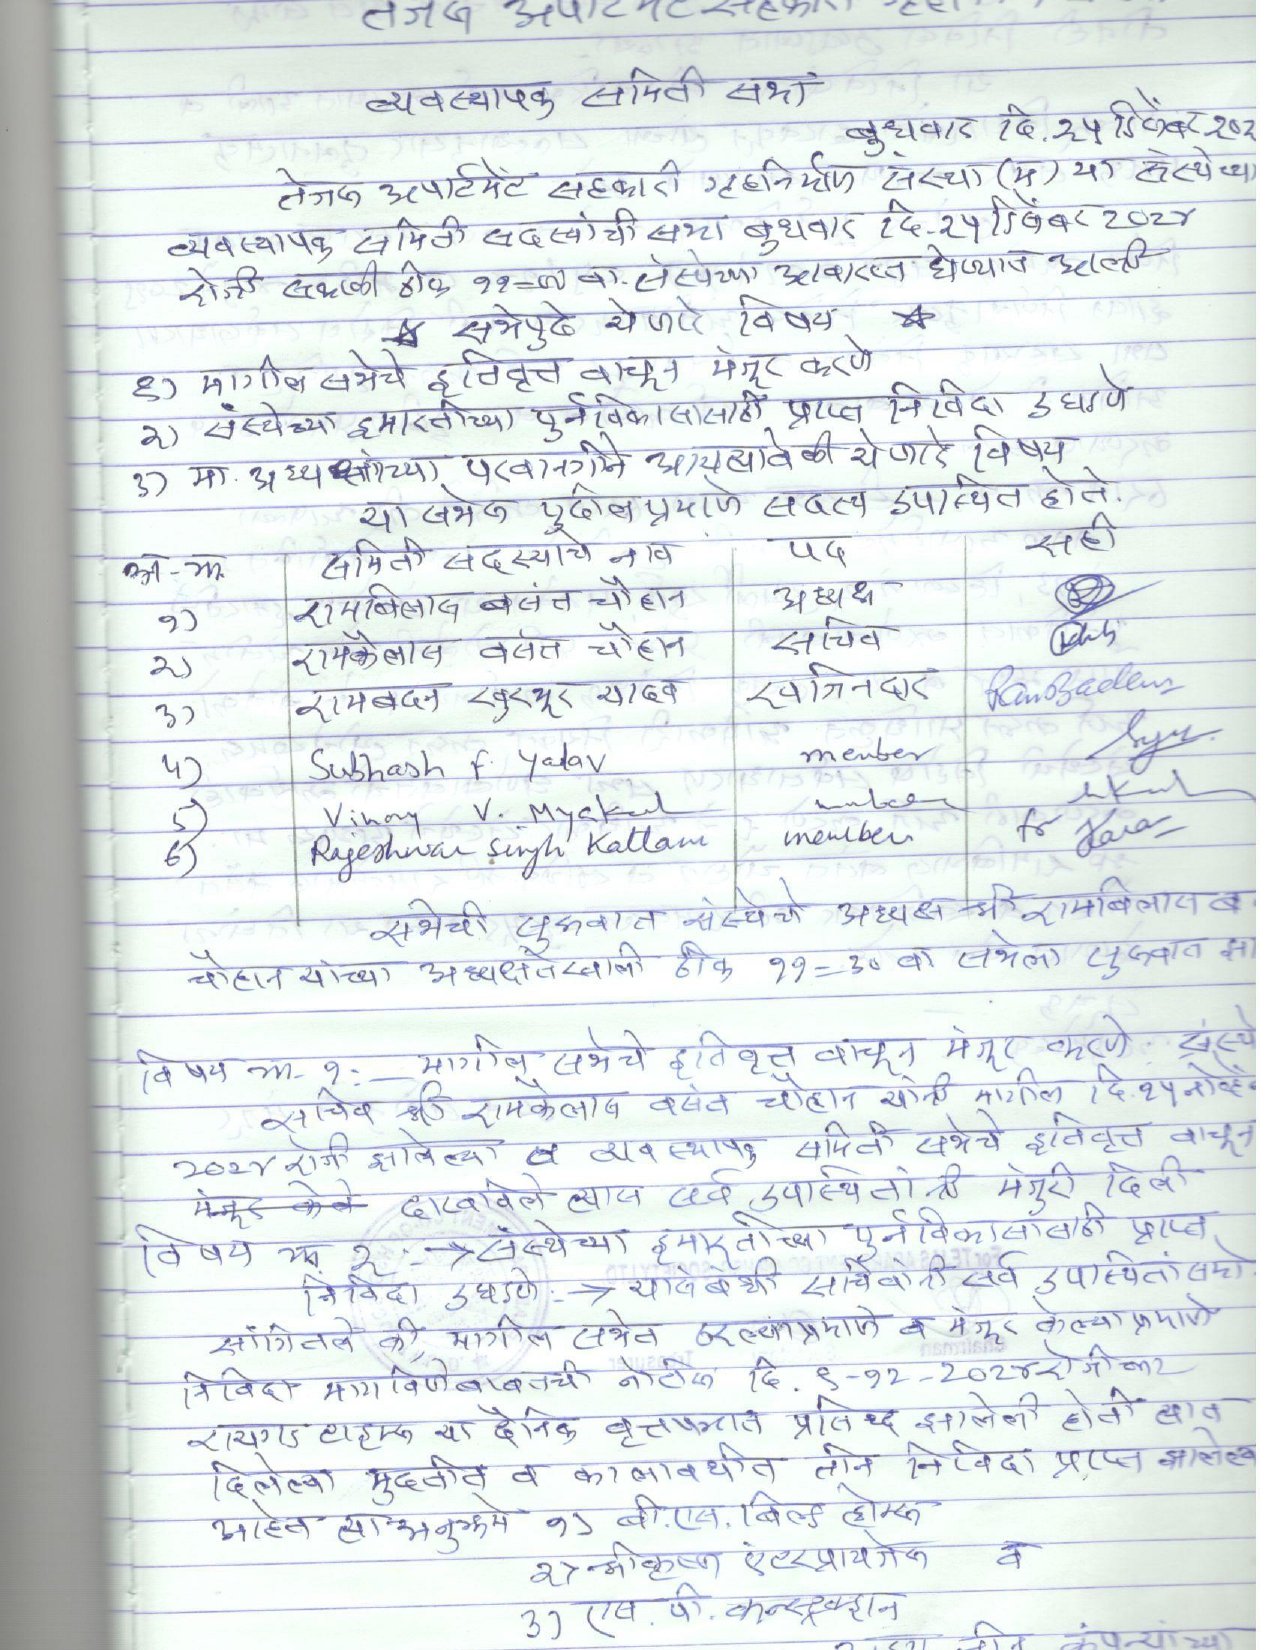 तेजस अपार्टमेंट सहकारी
व्यवस्थापक समिती सभा
बुधवार दि. २५ डिसेंबर २०२
तेजस अपार्टमेंट सहकारी गृहनिर्माण संस्था (म) या संस्थेच्या
व्यवस्थापक समिती सदस्यांची सभा बुधवार दि. २५ डिसेंबर 2०२४
रोजी सकाळी ठीक ११=०० वा. संस्थेच्या आवारात घेण्यात आली
☆ सभेपुढे येणारे विषय ☆
१) मागील सभेचे इतिवृत्त वाचून मंजूर करणे
२) संस्थेच्या इमारतीच्या पुर्नविकासासाठी प्राप्त निविदा उघडणे
३) मा. अध्यक्षांच्या परवानगीने आयत्यावेळी येणारे विषय
या सभेस पुढील प्रमाणे सदस्य उपस्थित होते.
अ-क्र समिती सदस्याचे नाव पद सही
१) रामबिलास बसंत चौहान अध्यक्ष
२) रामकैलास वसंत चौहान सचिव
३) रामबदन खुरभूर यादव खजिनदार RamBadan
४) Subhash F. Yadav member
5) Vinay V. Myakal member
6) Rajeshwar Singh Kallam member for
सभेची सुरुवात संस्थेचे अध्यक्ष श्री रामबिलास ब
चौहान यांच्या अध्यक्षतेखाली ठीक ११=३० वा सभेला सुरुवात झा
विषय क्र. १:— मागील सभेचे इतिवृत्त वाचून मंजूर करणे : संस्थे
सचिव श्री रामकैलास वसंत चौहान यांनी मागील दि. २५ नोव्हें
2०२४ रोजी झालेल्या व व्यवस्थापक समिती सभेचे इतिवृत्त वाचून
मंजूर केले दाखविले त्यास सर्व उपस्थितांनी मंजुरी दिली
विषय क्र. २ :→ संस्थेच्या इमारतीच्या पुर्नविकासासाठी प्राप्त
निविदा उघडणे :→ यावेळी सचिवांनी सर्व उपस्थितांसमो
सांगितले की, मागील सभेत ठरल्याप्रमाणे व मंजूर केल्याप्रमाणे
निविदा मागविणेबाबतची नोटीस दि. ९-१२-2०२४ रोजीच्या
रायगड टाइम्स या दैनिक वृत्तपत्रात प्रसिध्द झालेली होती त्यात
दिलेल्या मुदतीत व कालावधीत तीन निविदा प्राप्त झालेल्या
आहेत त्या अनुक्रमे १) बी.एस. बिल्ड होम्स
२) श्रीकृष्ण एंटरप्रायजेस व
३) एस. पी. कन्स्ट्रक्शन
तीन कंपन्यांच्या